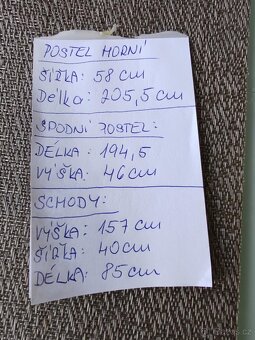 POSTEL HORNÍ
ŠÍŘKA: 58 cm
Délka: 205,5 cm
SPODNÍ POSTEL:
DÉLKA: 194,5
VÝŠKA: 46 cm
SCHODY:
VÝŠKA: 157 cm
ŠÍŘKA: 40 cm
DÉLKA: 85 cm